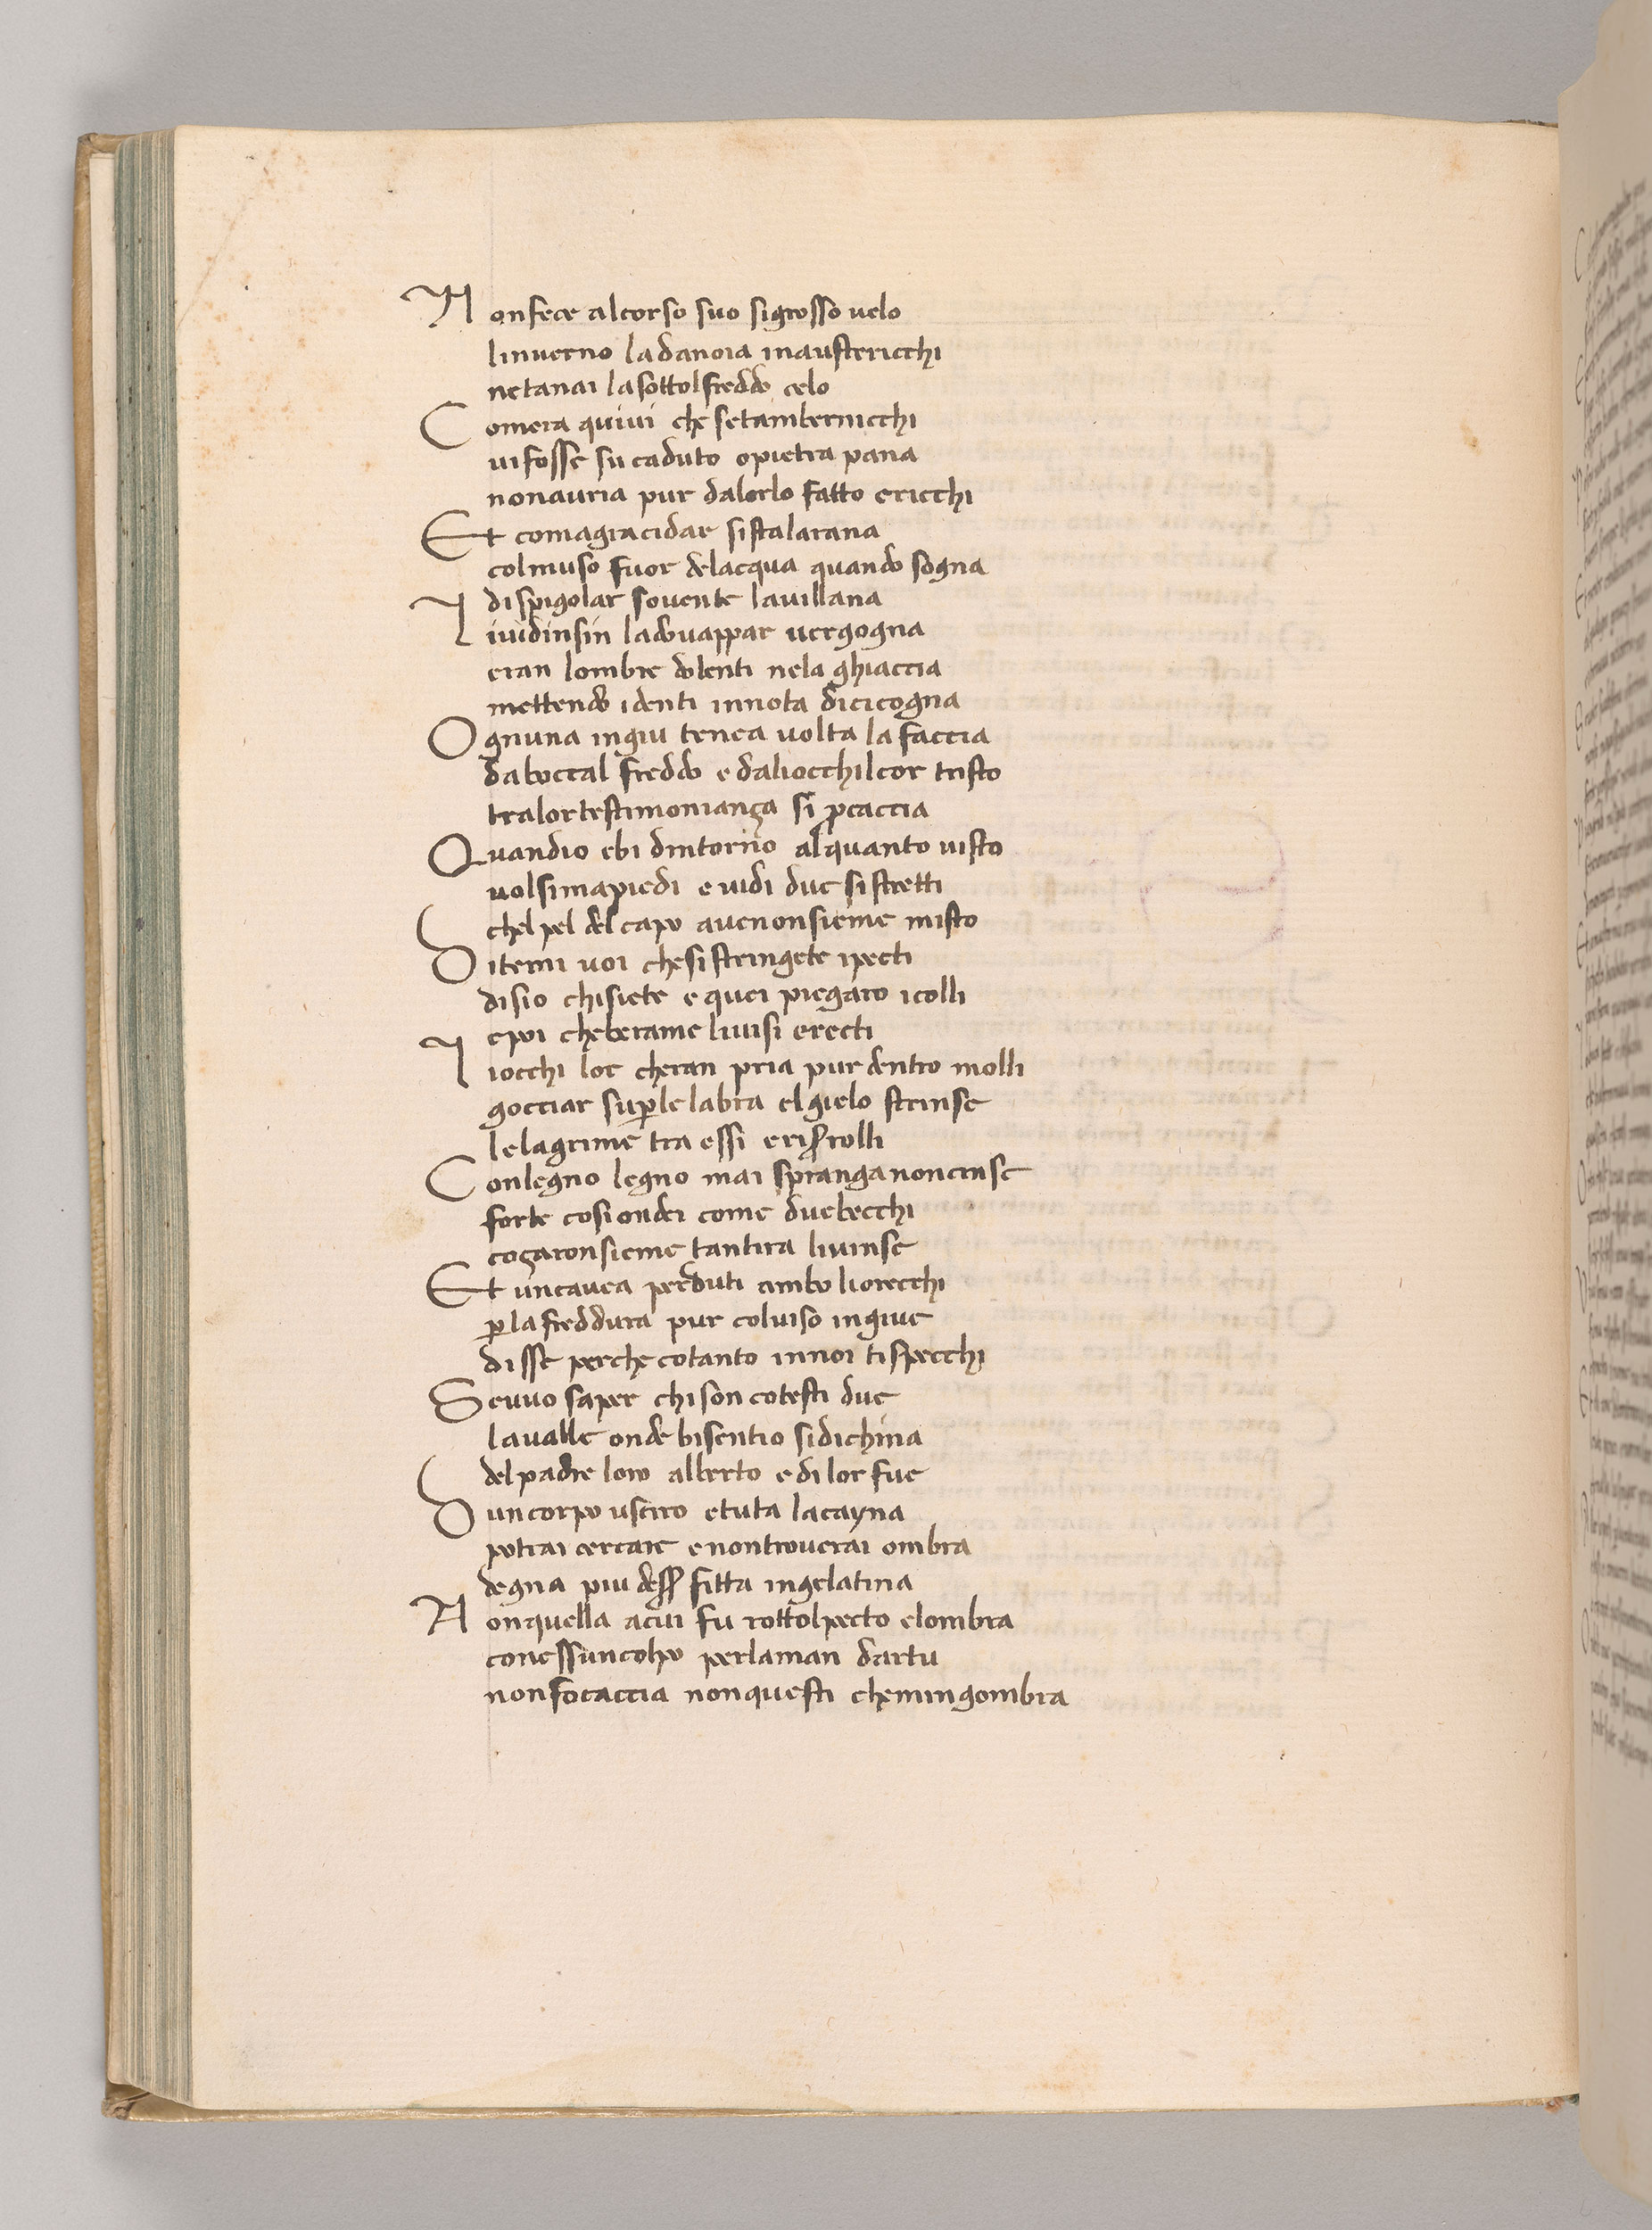 Non fece al corso suo si grosso velo
linuerno la danoia in austericchi
ne tanai la sottol freddo celo
Comera quiui che se tambernicchi
ui fosse su caduto o pietra pana
non auria pur dalorlo fatto cricchi
Et com a gracidar si sta la rana
col muso fuor de lacqua quando sogna
di spigolar souente la uillana
Liuid insin la doue appar uergogna
eran lombre dolenti ne la ghiaccia
mettendo i denti in nota di cicogna
Ognuna in giu tenea uolta la faccia
da boccal freddo e da li occhi il cor tristo
tra lor testimoniança si ꝓcaccia
Quandio ebi dintorno alquanto uisto
uolsim a piedi e uidi due si stretti
chel pel del capo auenonsieme misto
Ditemi uoi che si stringete i pecti
diss io chi siete e quei piegaro i colli
e poi cheber a me li uisi erecti
Li occhi lor cheran pria pur dentro molli
gocciar su ꝑ le labra el gielo strinse
le lagrime tra essi e riꝑrolli
Con legno legno mai spranga non cinse
forte cosi ondei come due becchi
coçaronsieme tantira li uinse
Et un cauea perduti ambo li orecchi
ꝑ la freddura pur col uiso in giue
disse perche cotanto in noi ti specchi
Se uuo saper chi son cotesti due
la ualle onde bisentio si dichina
del padre loro alberto e di lor fue
Dun corpo usciro e tuta la cayna
potrai cercare e non trouerai ombra
degna piu dess̄ fitta in gelatina
Non quella a cui fu rottol pecto e lombra
con ess un colpo per la man dartu
non focaccia non questi che mingombra